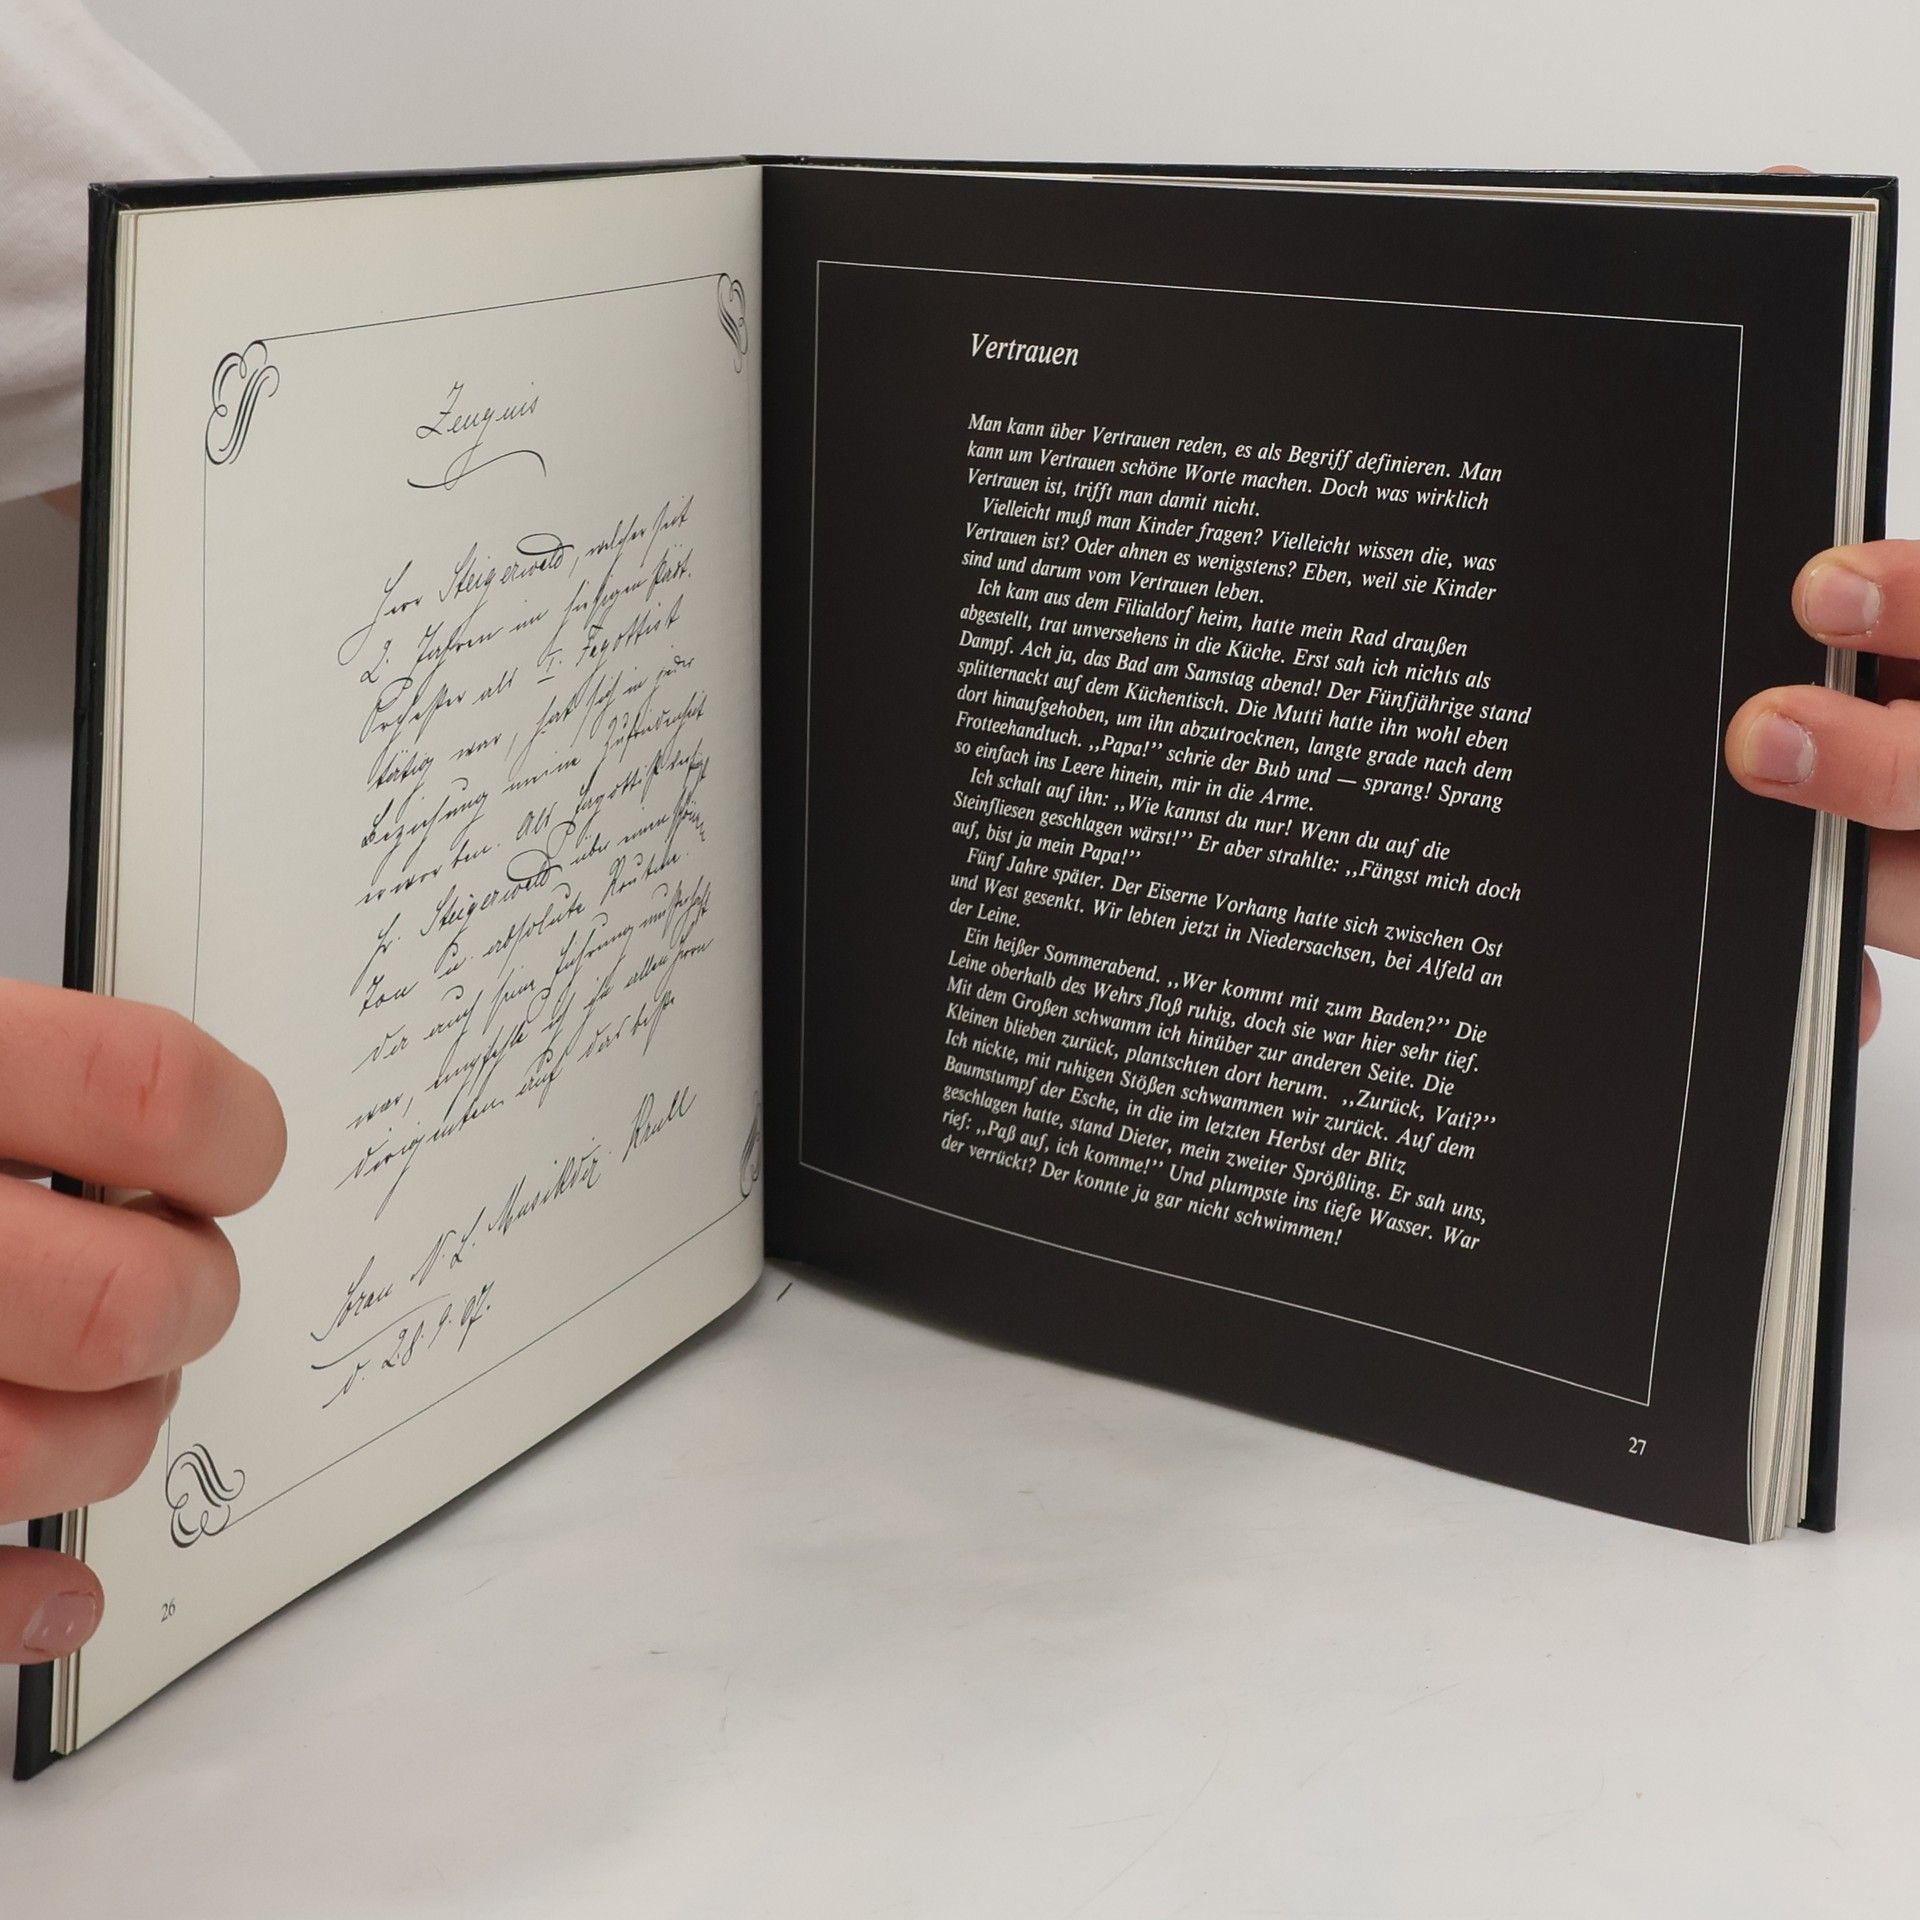 Zeugnis
Herr Steigerwald, welcher seit
2. Jahren im hiesigen städt.
Orchester als I. Fagottist
tätig war, hat sich in jeder
Beziehung meine Zufriedenheit
erworben. Als Fagottist verfügt
Hr. Steigerwald über einen schönen
Ton u. absolute Routine.
Da auch seine Führung musterhaft
war, empfehle ich ihn allen Herrn
Dirigenten auf das beste
Sorau N. L. Musikdir. Krull
d. 28. 9. 07.
26
Vertrauen
Man kann über Vertrauen reden, es als Begriff definieren. Man
kann um Vertrauen schöne Worte machen. Doch was wirklich
Vertrauen ist, trifft man damit nicht.
Vielleicht muß man Kinder fragen? Vielleicht wissen die, was
Vertrauen ist? Oder ahnen es wenigstens? Eben, weil sie Kinder
sind und darum vom Vertrauen leben.
Ich kam aus dem Filialdorf heim, hatte mein Rad draußen
abgestellt, trat unversehens in die Küche. Erst sah ich nichts als
Dampf. Ach ja, das Bad am Samstag abend! Der Fünfjährige stand
splitternackt auf dem Küchentisch. Die Mutti hatte ihn wohl eben
dort hinaufgehoben, um ihn abzutrocknen, langte grade nach dem
Frotteehandtuch. ,,Papa!’’ schrie der Bub und — sprang! Sprang
so einfach ins Leere hinein, mir in die Arme.
Ich schalt auf ihn: ,,Wie kannst du nur! Wenn du auf die
Steinfliesen geschlagen wärst!’’ Er aber strahlte: ,,Fängst mich doch
auf, bist ja mein Papa!’’
Fünf Jahre später. Der Eiserne Vorhang hatte sich zwischen Ost
und West gesenkt. Wir lebten jetzt in Niedersachsen, bei Alfeld an
der Leine.
Ein heißer Sommerabend. ,,Wer kommt mit zum Baden?’’ Die
Leine oberhalb des Wehrs floß ruhig, doch sie war hier sehr tief.
Mit dem Großen schwamm ich hinüber zur anderen Seite. Die
Kleinen blieben zurück, plantschten dort herum. ,,Zurück, Vati?’’
Ich nickte, mit ruhigen Stößen schwammen wir zurück. Auf dem
Baumstumpf der Esche, in die im letzten Herbst der Blitz
geschlagen hatte, stand Dieter, mein zweiter Sprößling. Er sah uns,
rief: ,,Paß auf, ich komme!’’ Und plumpste ins tiefe Wasser. War
der verrückt? Der konnte ja gar nicht schwimmen!
27